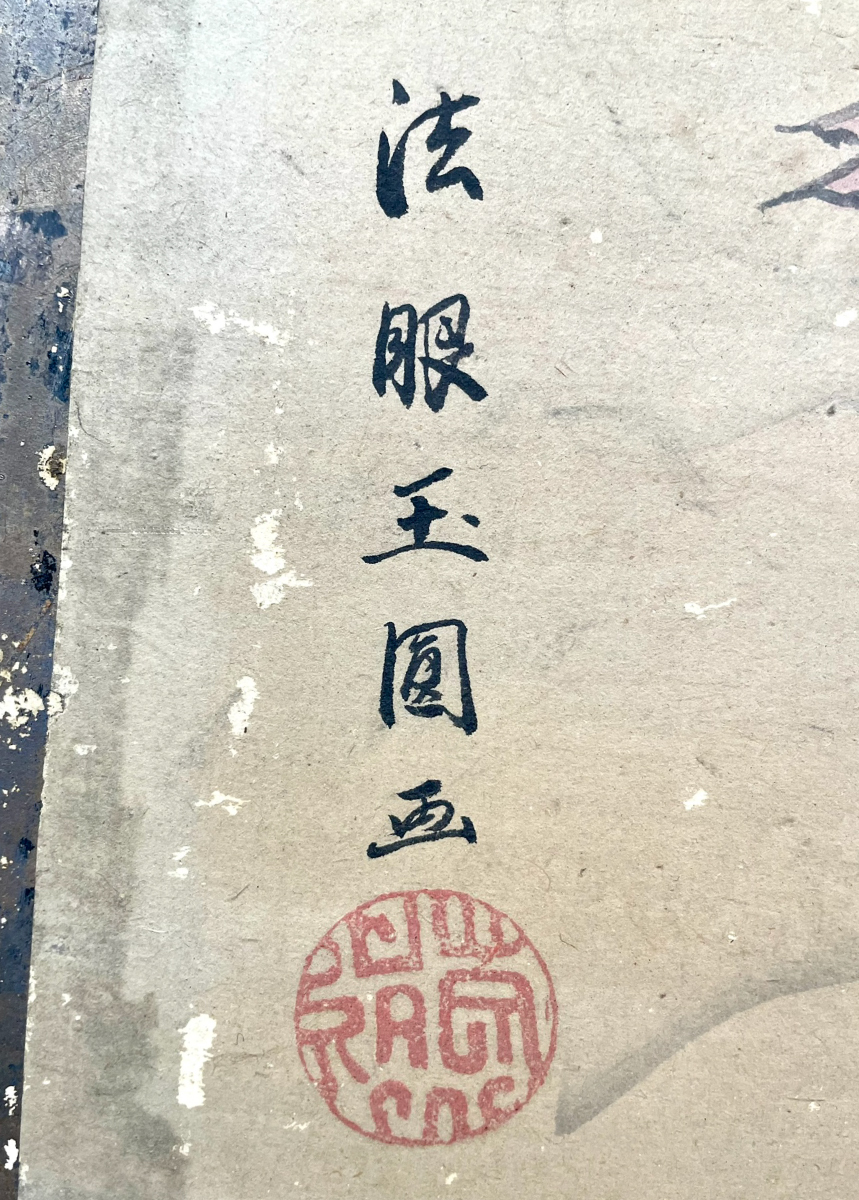 法眼玉圓画